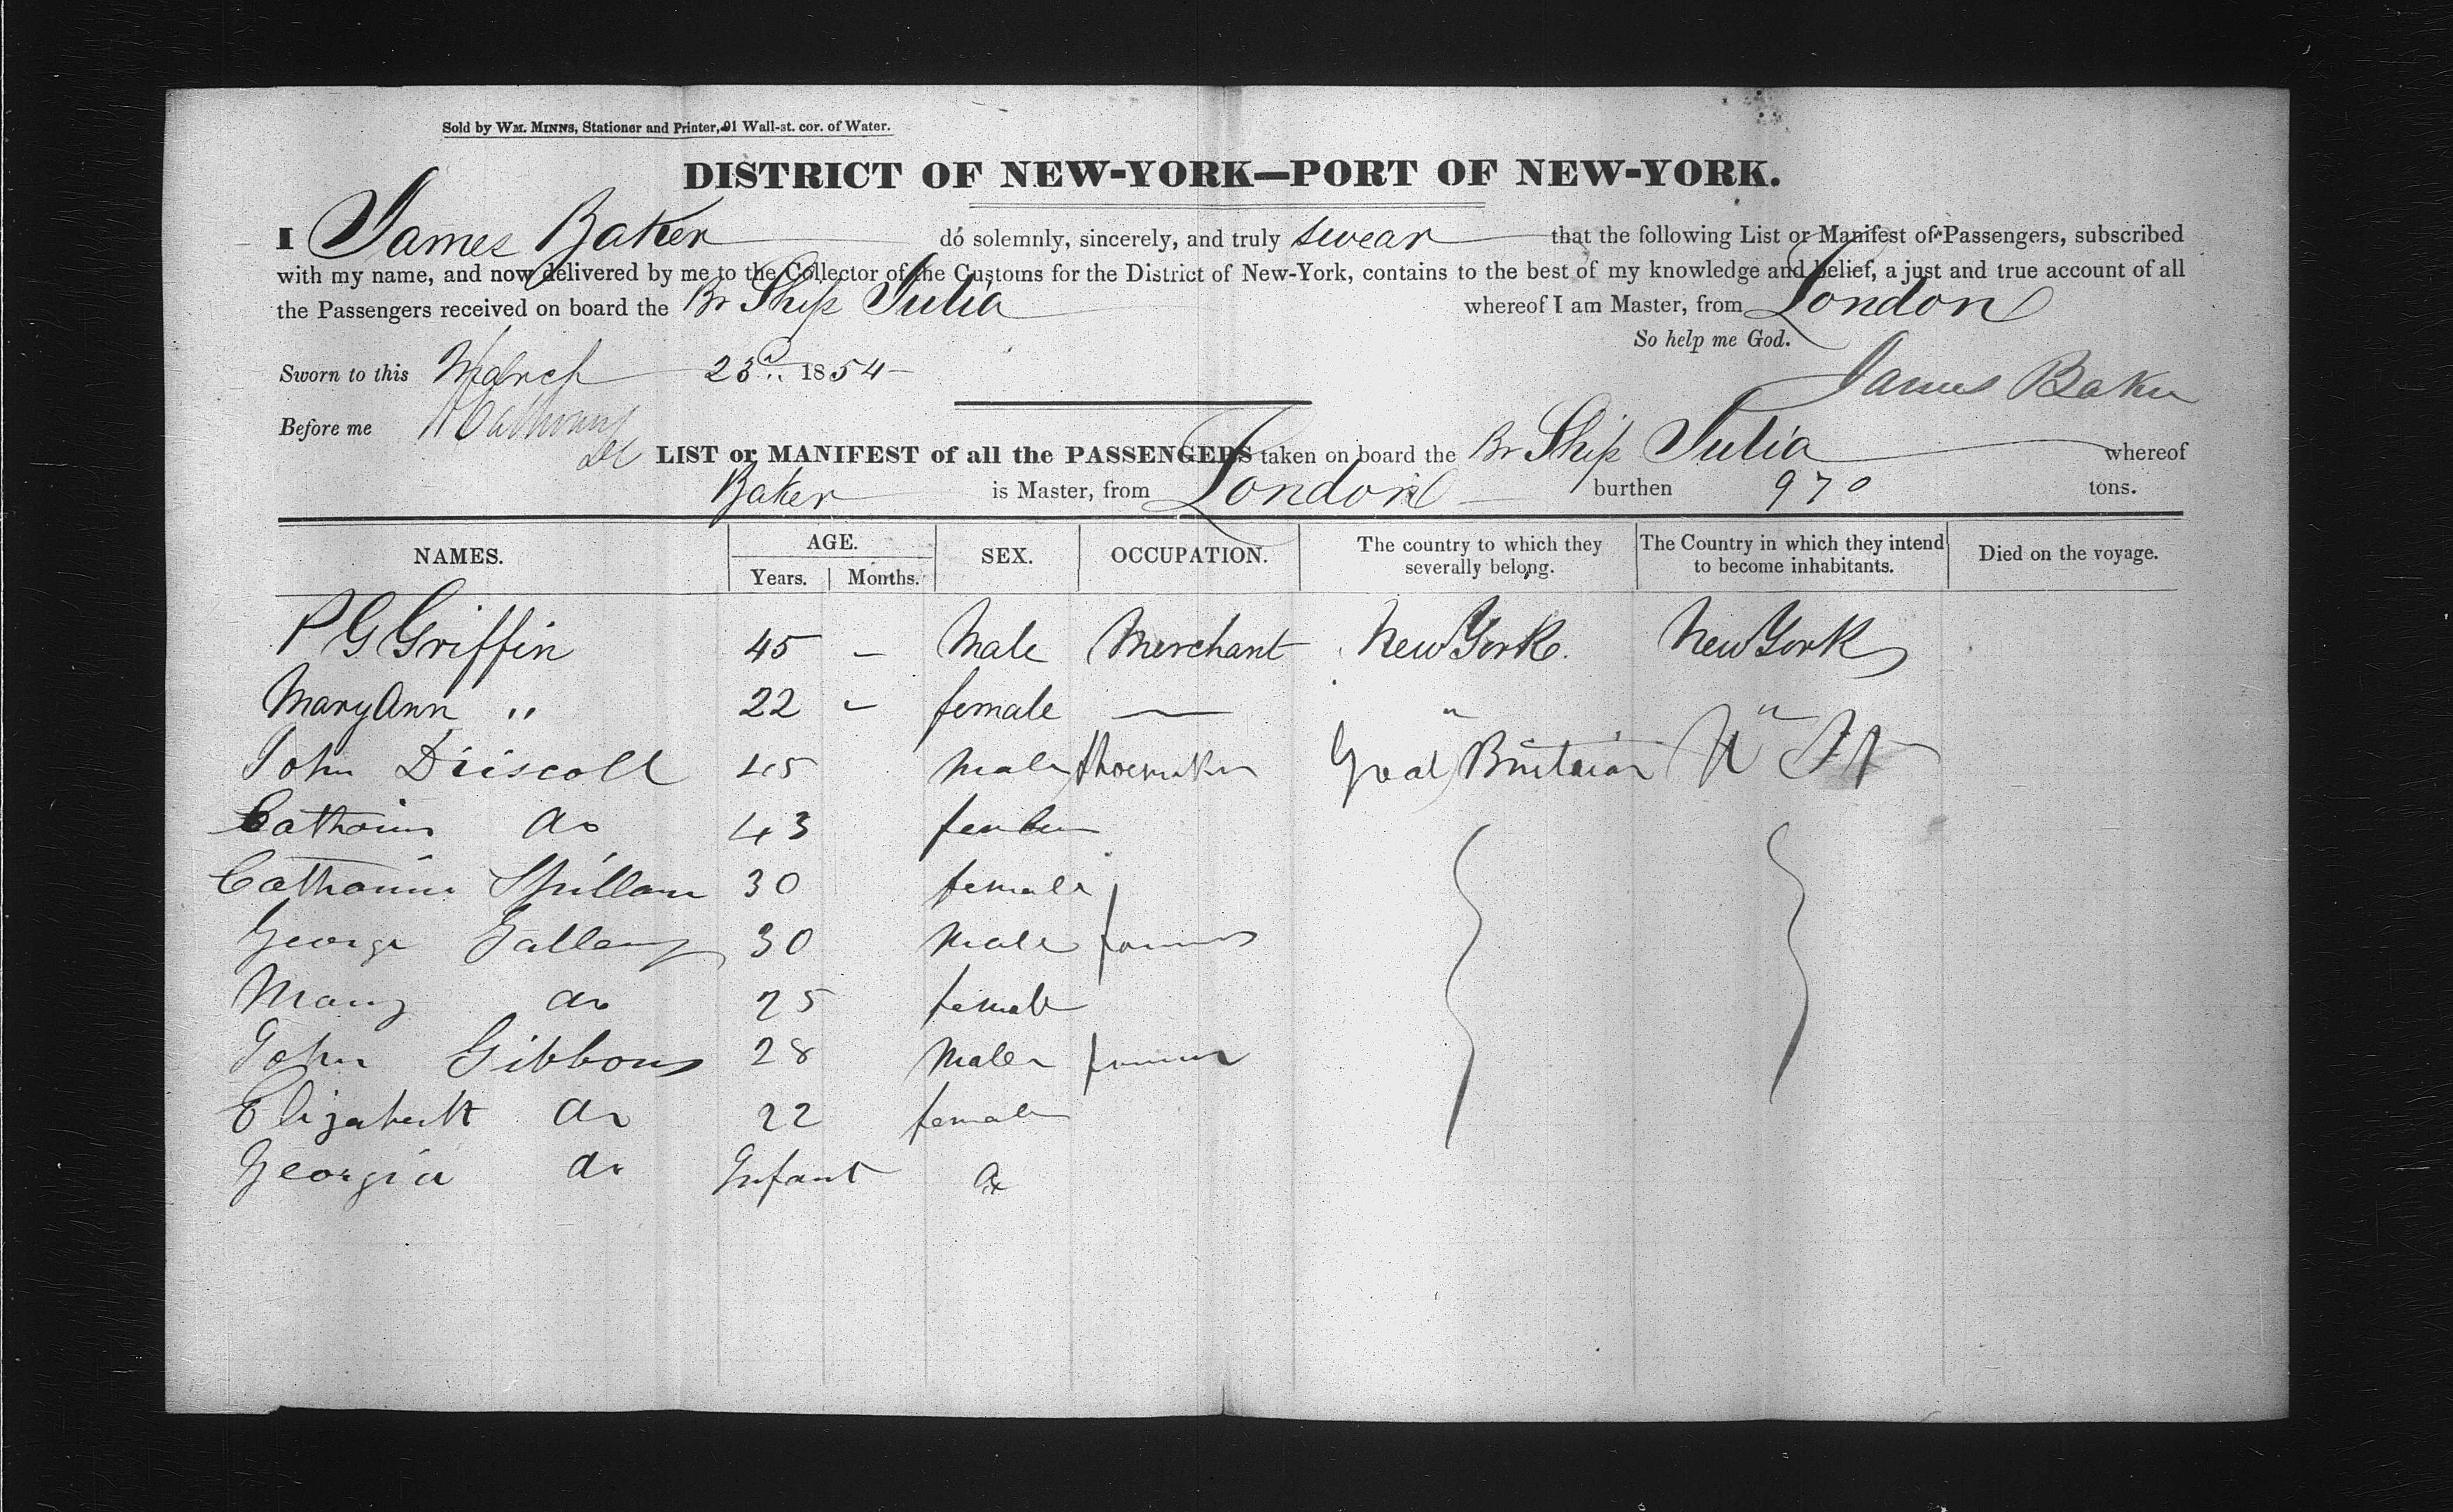 Sold by WM. MINNS, Stationer and Printer, 91 Wall-st. cor. of Water.
DISTRICT OF NEW-YORK—PORT OF NEW-YORK.
I James Baker do solemnly, sincerely, and truly swear that the following List or Manifest of Passengers, subscribed
with my name, and now delivered by me to the Collector of the Customs for the District of New-York, contains to the best of my knowledge and belief, a just and true account of all
the Passengers received on board the Br Ship Julia whereof I am Master, from London
So help me God.
Sworn to this March 23d 1854
James Baker
Before me
LIST or MANIFEST of all the PASSENGERS taken on board the Br Ship Julia whereof
Baker is Master, from London burthen 970 tons.
NAMES. AGE. Years. Months. SEX. OCCUPATION. The country to which they severally belong. The Country in which they intend to become inhabitants. Died on the voyage.
P G Griffin 45 – Male Merchant New York. New York
Mary Ann " 22 – female — " "
John Driscoll 45 male Shoemaker Great Britain
Catharine do 43 female
Catharine Spillane 30 female
George 30 male farmer
Mary do 25 female
John Gibbons 28 male farmer
Elizabeth do 22 female
Georgia do Infant do